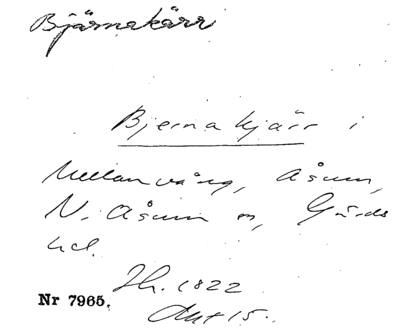 Björnakärr
Bjerna kjärr i
Mellanvång, Åsum,
N. Åsum sn, Gärds
hd.
Jh. 1822
Akt 15.
Nr 7965.